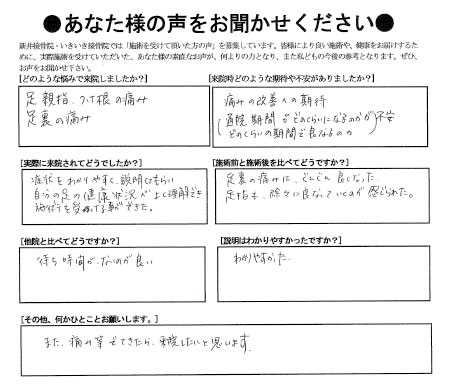 ●あなた様の声をお聞かせください●
新井接骨院・いきいき接骨院では「施術を受けて頂いた方の声」を募集しています。皆様により良い施術や、健康をお届けするため
に、実際施術を受けていただいた、あなた様の素直なお声が、何よりの力となり、また私どもの今後の参考となります。ぜひ、
お声をお聞かせ下さい。
[どのような悩みで来院しましたか?]
足親指、つけ根の痛み
足裏の痛み
[来院時どのような期待や不安がありましたか?]
痛みの改善への期待
(通院期間がどのくらいになるのかが)不安
どのくらいの期間で良なるのか
[実際に来院されてどうでしたか?]
症状をわかりやすく、説明してもらい
自分の足の健康状況がよく理解でき
施術を受ける事ができた。
[施術前と施術後を比べてどうですか?]
足裏の痛みは、どんどん良くなった
足指も、徐々に良なっていくのが感じられた。
[他院と比べてどうですか?]
待ち時間が、ないのが良い
[説明はわかりやすかったですか?]
わかりやすかった.
[その他、何かひとことお願いします。]
また、痛み等でてきたら、来院したいと思います.